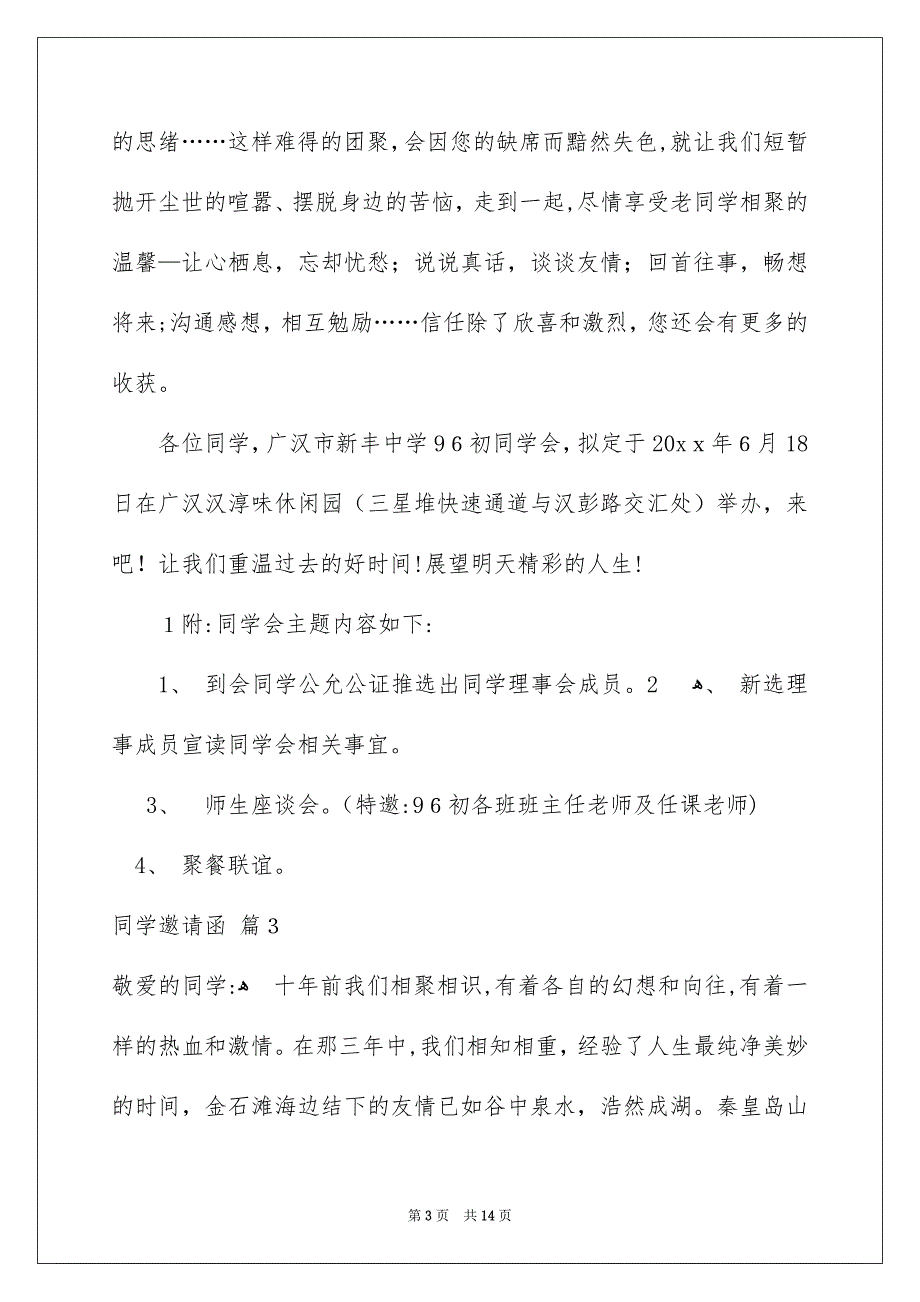 的思绪……这样难得的团聚,会因您的缺席而黯然失色,就让我们短暂
抛开尘世的喧嚣、摆脱身边的苦恼，走到一起,尽情享受老同学相聚的
温馨—让心栖息，忘却忧愁；说说真话，谈谈友情；回首往事，畅想
将来;沟通感想，相互勉励……信任除了欣喜和激烈，您还会有更多的
收获。
各位同学，广汉市新丰中学96初同学会，拟定于20xx年6月18
日在广汉汉淳味休闲园（三星堆快速通道与汉彭路交汇处）举办，来
吧！让我们重温过去的好时间!展望明天精彩的人生!
1附:同学会主题内容如下:
1、 到会同学公允公证推选出同学理事会成员。2 ﻫ、 新选理
事成员宣读同学会相关事宜。
3、 师生座谈会。（特邀:96初各班班主任老师及任课老师)
4、 聚餐联谊。
同学邀请函 篇3
敬爱的同学:ﻫ 十年前我们相聚相识,有着各自的幻想和向往,有着一
样的热血和激情。在那三年中,我们相知相重，经验了人生最纯净美妙
的时间，金石滩海边结下的友情已如谷中泉水，浩然成湖。秦皇岛山
第3页 共14页